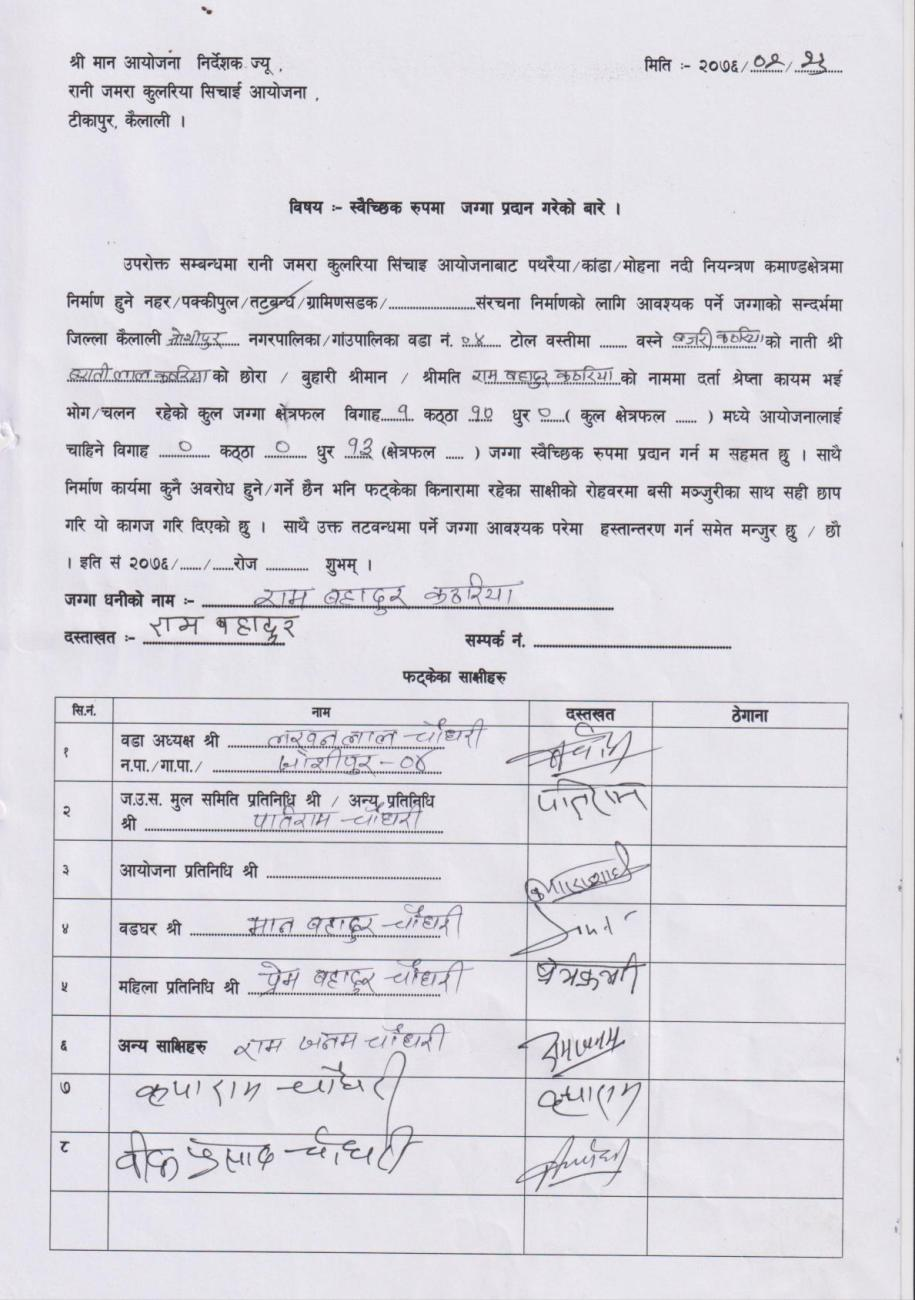 श्री मान आयोजना निर्देशक ज्यू ,
मिति :- २०७६/०२/२३
रानी जमरा कुलरिया सिचाई आयोजना ,
टीकापुर, कैलाली ।
विषय :- स्वैच्छिक रुपमा जग्गा प्रदान गरेको बारे ।
उपरोक्त सम्बन्धमा रानी जमरा कुलरिया सिंचाइ आयोजनाबाट पथरैया/कांडा/मोहना नदी नियन्त्रण कमाण्डक्षेत्रमा
निर्माण हुने नहर/पक्कीपुल/तटबन्ध/ग्रामिणसडक/........................संरचना निर्माणको लागि आवश्यक पर्ने जग्गाको सन्दर्भमा
जिल्ला कैलाली जोशीपुर..... नगरपालिका/गांउपालिका वडा नं. ०४..... टोल वस्तीमा ........ वस्ने बजरी कठरिया को नाती श्री
लाल कठरिया को छोरा / बुहारी श्रीमान / श्रीमति राम बहादुर कठरिया को नाममा दर्ता श्रेष्ता कायम भई
भोग/चलन रहेको कुल जग्गा क्षेत्रफल विगाह..१.. कठ्ठा १० धुर ०.....( कुल क्षेत्रफल ...... ) मध्ये आयोजनालाई
चाहिने विगाह ....०..... कठ्ठा ....०.... धुर .१३. (क्षेत्रफल ..... ) जग्गा स्वैच्छिक रुपमा प्रदान गर्न म सहमत छु । साथै
निर्माण कार्यमा कुनै अवरोध हुने/गर्ने छैन भनि फट्केका किनारामा रहेका साक्षीको रोहवरमा बसी मञ्जुरीका साथ सही छाप
गरि यो कागज गरि दिएको छु । साथै उक्त तटवन्धमा पर्ने जग्गा आवश्यक परेमा हस्तान्तरण गर्न समेत मन्जुर छु / छौ
। इति सं २०७६/....../......रोज ............ शुभम् ।
जग्गा धनीको नाम :- राम बहादुर कठरिया
दस्ताखत :- राम बहादुर सम्पर्क नं. ........................................
फट्केका साक्षीहरु
सि.नं. नाम दस्तखत ठेगाना
१ वडा अध्यक्ष श्री लखन लाल चौधरी
न.पा./गा.पा./ जोशीपुर - ०४
२ ज.उ.स. मुल समिति प्रतिनिधि श्री / अन्य प्रतिनिधि
श्री पातिराम चौधरी पातिराम
३ आयोजना प्रतिनिधि श्री ........................................
४ वडघर श्री मान बहादुर चौधरी
५ महिला प्रतिनिधि श्री प्रेम बहादुर चौधरी
६ अन्य साक्षिहरु राम जनम चौधरी रामजनम
७ कृपाराम चौधरी कृपाराम
८ प्रसाद चौधरी